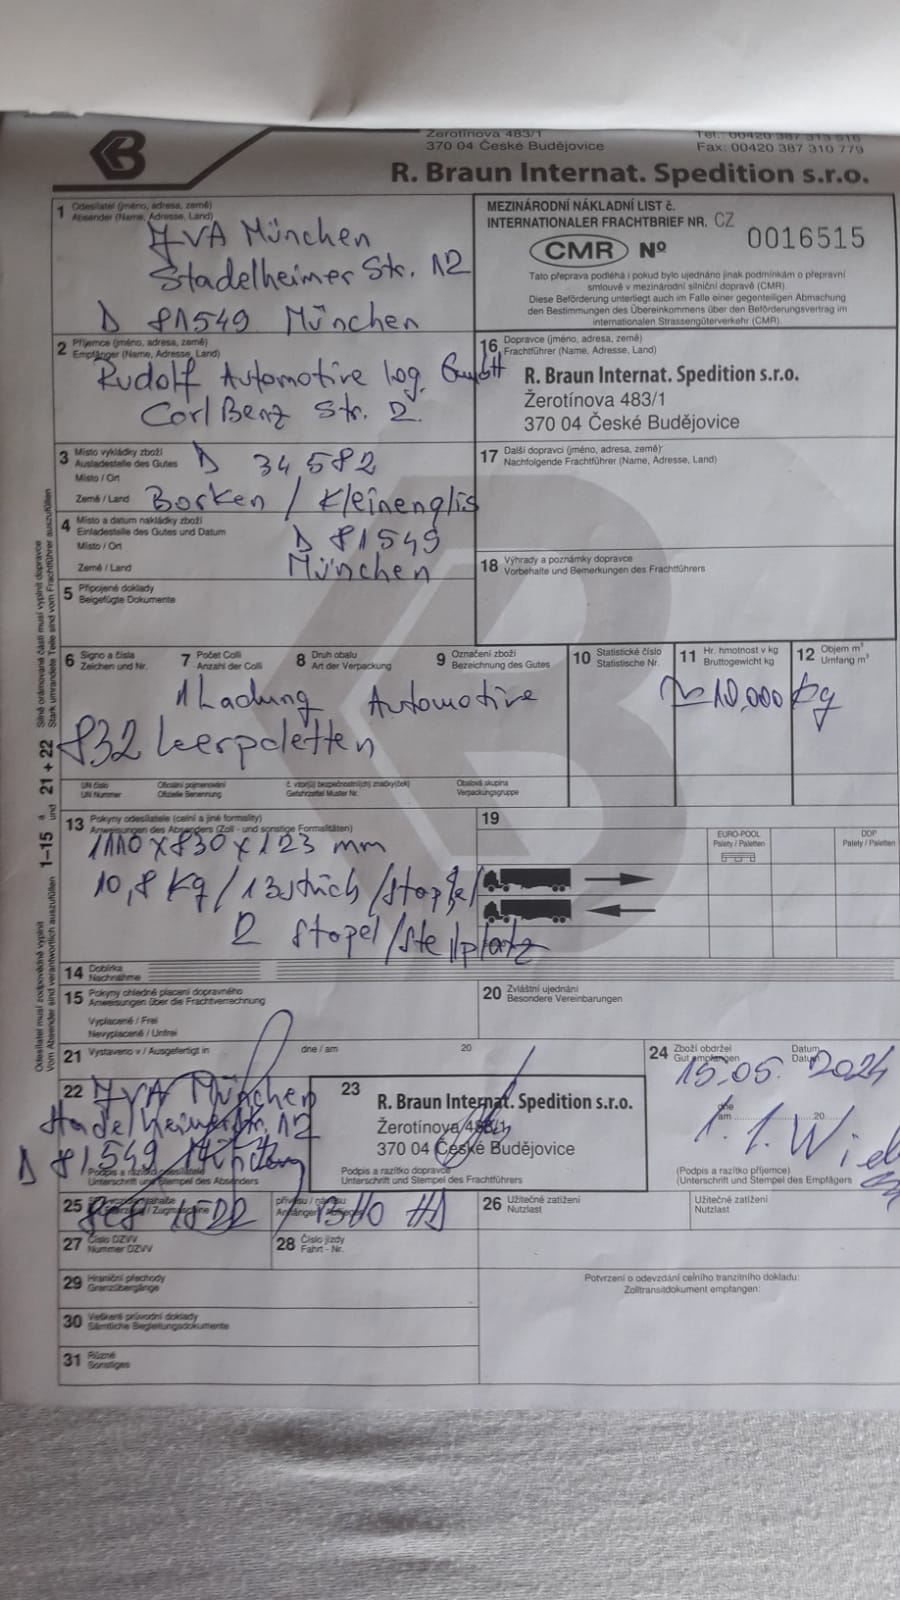 Žerotínova 483/1
370 04 České Budějovice
Tel.: 00420 387 313 516
Fax: 00420 387 310 779
R. Braun Internat. Spedition s.r.o.
1 Odesílatel (jméno, adresa, země)
Absender (Name, Adresse, Land)
JVA München
Stadelheimer Str. 12
D 81549 München
MEZINÁRODNÍ NÁKLADNÍ LIST č.
INTERNATIONALER FRACHTBRIEF NR. CZ
CMR Nº 0016515
Tato přeprava podléhá i pokud bylo ujednáno jinak podmínkám o přepravní
smlouvě v mezinárodní silniční dopravě (CMR).
Diese Beförderung unterliegt auch im Falle einer gegenteiligen Abmachung
den Bestimmungen des Übereinkommens über den Beförderungsvertrag im
internationalen Strassengüterverkehr (CMR).
2 Příjemce (jméno, adresa, země)
Empfänger (Name, Adresse, Land)
Rudolf Automotive Log. GmbH
Carl Benz Str. 2
16 Dopravce (jméno, adresa, země)
Frachtführer (Name, Adresse, Land)
R. Braun Internat. Spedition s.r.o.
Žerotínova 483/1
370 04 České Budějovice
3 Místo vykládky zboží
Ausladestelle des Gutes
D 34582
Místo / Ort
Země / Land Borken / Kleinenglis
17 Další dopravci (jméno, adresa, země)
Nachfolgende Frachtführer (Name, Adresse, Land)
4 Místo a datum nakládky zboží
Einladestelle des Gutes und Datum
Místo / Ort D 81549
Země / Land München
18 Výhrady a poznámky dopravce
Vorbehalte und Bemerkungen des Frachtführers
5 Připojené doklady
Beigefügte Dokumente
6 Signo a čísla
Zeichen und Nr.
7 Počet Colli
Anzahl der Colli
8 Druh obalu
Art der Verpackung
9 Označení zboží
Bezeichnung des Gutes
10 Statistické číslo
Statistische Nr.
11 Hr. hmotnost v kg
Bruttogewicht kg
12 Objem m³
Umfang m³
1 Ladung Automotive
~ 10,000 kg
832 Leerpaletten
UN číslo
UN Nummer
Oficiální pojmenování
Offizielle Benennung
č. vzoru(ů) bezpečnostní(ch) značky(ček)
Gefahrzettel Muster Nr.
Obalová skupina
Verpackungsgruppe
13 Pokyny odesílatele (celní a jiné formality)
Anweisungen des Absenders (Zoll - und sonstige Formalitäten)
1110 x 830 x 123 mm
10,8 kg / 13 stück / stapel
2 stapel / stellplatz
19
EURO-POOL
Palety / Paletten
DDP
Palety / Paletten
14 Dobírka
Nachnahme
15 Pokyny ohledně placení dopravného
Anweisungen über die Frachtverrechnung
Vyplaceně / Frei
Nevyplaceně / Unfrei
20 Zvláštní ujednání
Besondere Vereinbarungen
21 Vystaveno v / Ausgefertigt in dne / am 20
24 Zboží obdržel
Gut empfangen
Datum
Datum
15.05. 2024
dne
am 20
22 JVA München
Stadelheimer Str. 12
D 81549 München
Podpis a razítko odesílatele
Unterschrift und Stempel des Absenders
23 R. Braun Internat. Spedition s.r.o.
Žerotínova 483/1
370 04 České Budějovice
Podpis a razítko dopravce
Unterschrift und Stempel des Frachtführers
(Podpis a razítko příjemce)
(Unterschrift und Stempel des Empfängers
25
26 Užitečné zatížení
Nutzlast
Užitečné zatížení
Nutzlast
27 Číslo DZVV
Nummer DZVV
28 Číslo jízdy
Fahrt - Nr.
29 Hraniční přechody
Grenzübergänge
Potvrzení o odevzdání celního tranzitního dokladu:
Zolltransitdokument empfangen:
30 Veškeré průvodní doklady
Sämtliche Begleitungsdokumente
31 Různé
Sonstiges
Silně orámované části musí vyplnit dopravce
Stark umrandete Teile sind vom Frachtführer auszufüllen
1–15 a und 21 + 22
Odesílatel musí zodpovědně vyplnit
Vom Absender sind verantwortlich auszufüllen